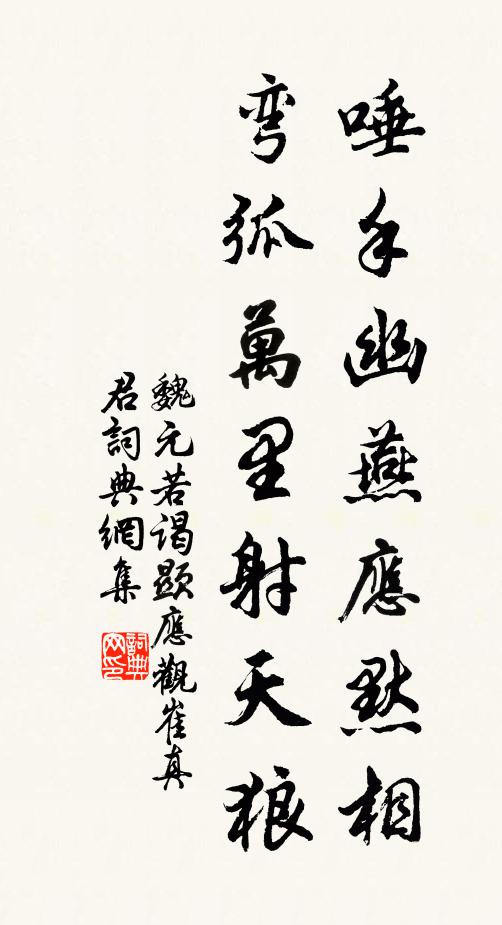 唾手幽燕應默相
彎弧萬里射天狼
魏元若謁顯應觀崔真
君詞典網集
詞典网印